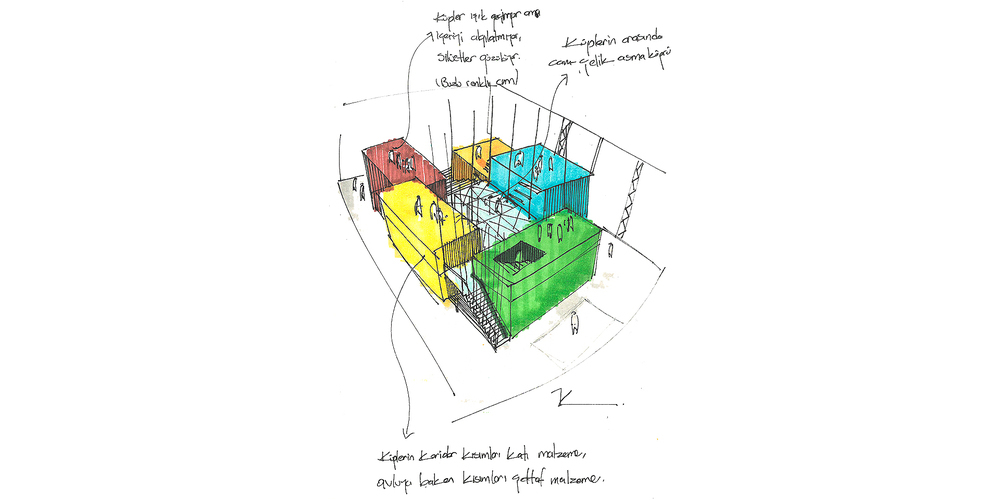 Küpler ışık geçiriyor ama
içeriyi algılatmıyor,
Silüetler gözüküyor.
(Buzlu renkli cam)
Küplerin arasında
cam çelik asma köprü
Küplerin koridor kısımları katı malzeme,
avluya bakan kısımları şeffaf malzeme.